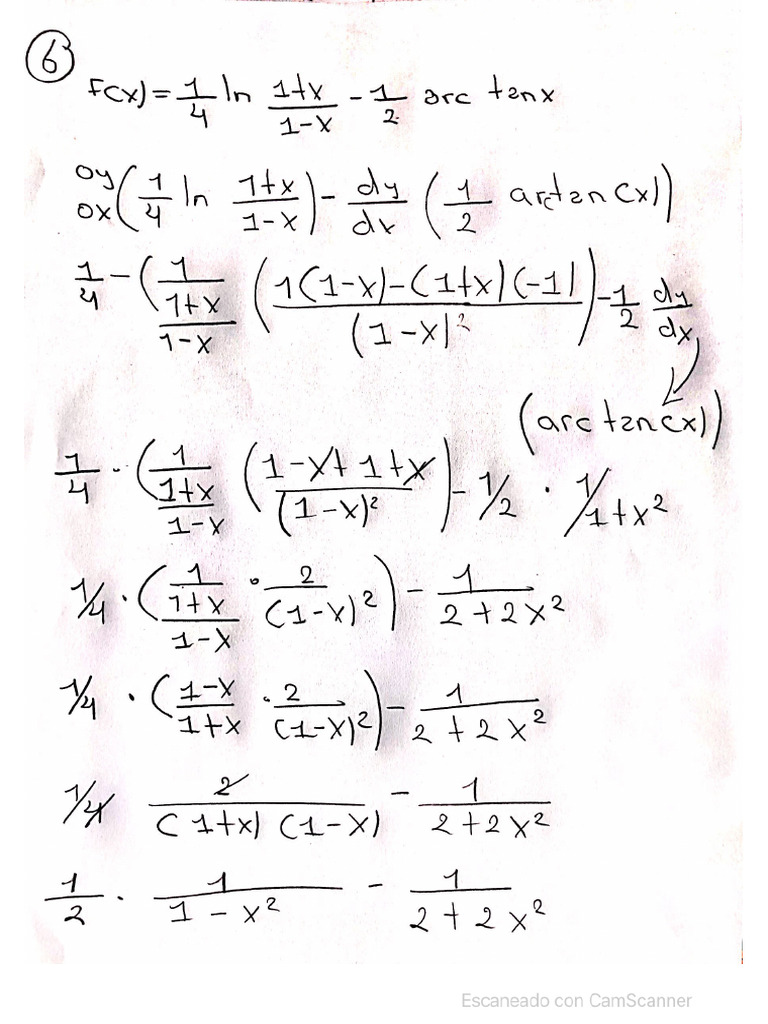 6
F(x) = 1/4 ln (1+x)/(1-x) - 1/2 arc tan x
oy/ox (1/4 ln (1+x)/(1-x)) - dy/dx (1/2 arctan (x))
1/4 - (1/((1+x)/(1-x)) ((1(1-x)-(1+x)(-1))/(1-x)²) - 1/2 dy/dx
(arc tan (x))
1/4 · (1/((1+x)/(1-x)) ((1-x+1+x)/(1-x)²) - 1/2 · 1/1+x²
1/4 · (1/((1+x)/(1-x)) · 2/(1-x)²) - 1/(2+2x²)
1/4 · ((1-x)/(1+x) · 2/(1-x)²) - 1/(2+2x²)
1/4 2/((1+x)(1-x)) - 1/(2+2x²)
1/2 · 1/(1-x²) - 1/(2+2x²)
Escaneado con CamScanner